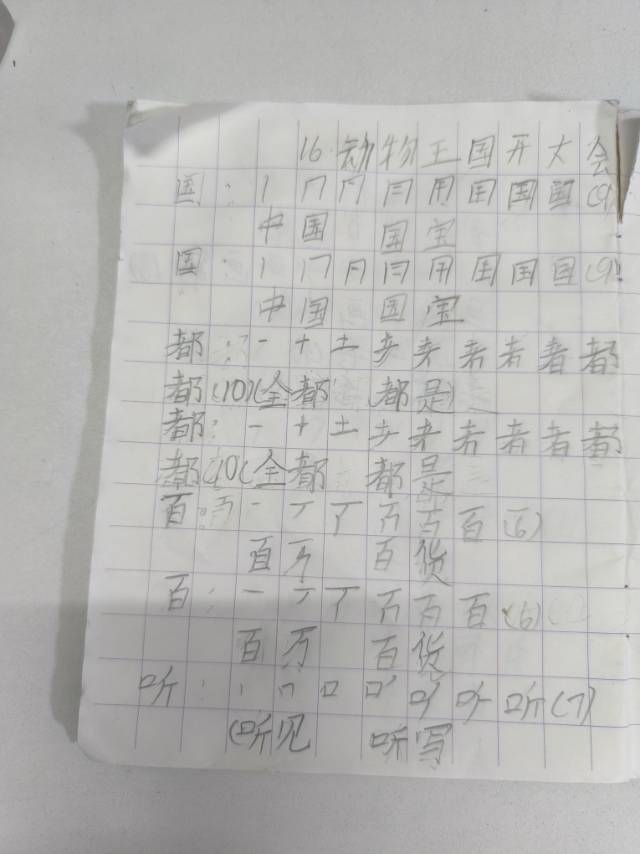 16 动物王国开大会
国: 丨 冂 冂 冃 用 国 国 国 (9)
中国 国宝
国: 丨 冂 冂 冃 用 国 国 国 (9)
中国 国宝
都: 一 十 土 耂 耂 者 者 者 都
都(10)(全都 (都是)
都: 一 十 土 耂 耂 者 者 者 都
都(10(全都 都是
百: 一 丆 丆 百 百 百 (6)
百万 百货
百: 一 丆 丆 百 百 百 (6)
百万 百货
听: 丨 冂 口 叮 听 听 听 (7)
(听见 听写